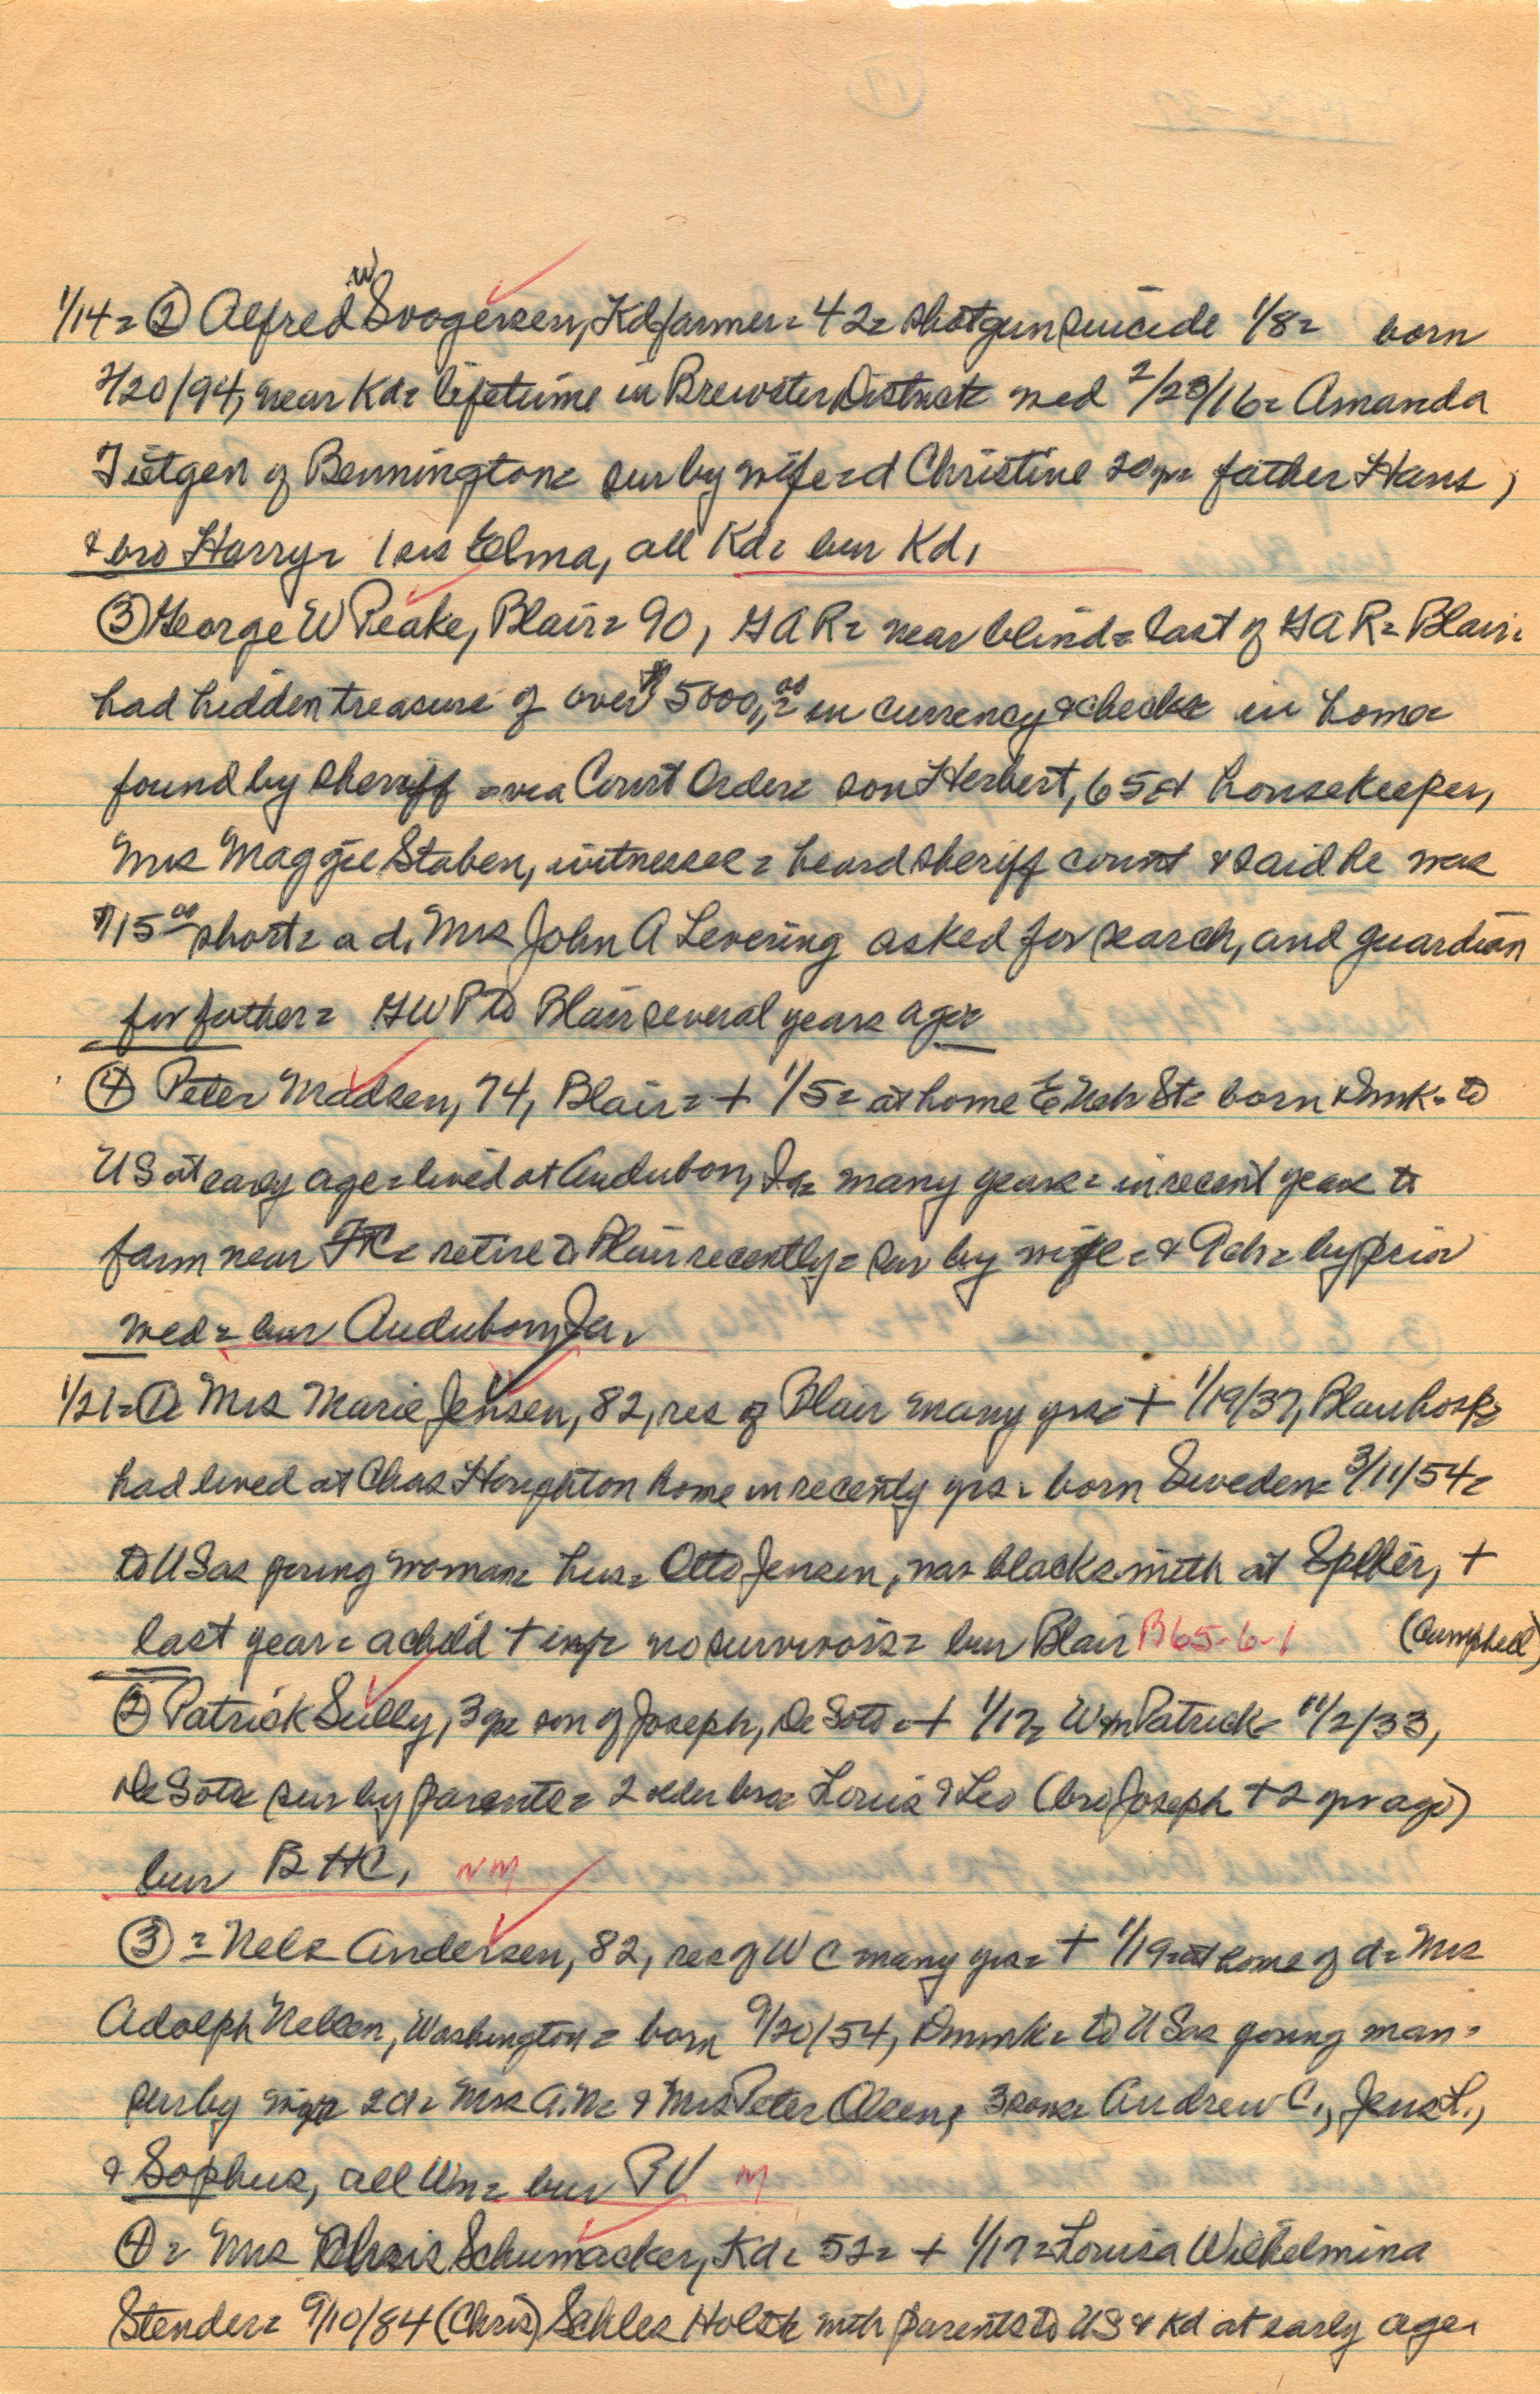 1/14 = ② Alfred W Svogersen, Kd farmer = 42 = shotgun suicide 1/8 = born
2/20/94, near Kd = lifetime in Brewster District = med 2/23/16 = Amanda
Tietgen of Bennington = sur by wife = d Christine 20 yr = father Hans,
& bro Harry = 1 sis Elma, all Kd = bur Kd,
③ George W Peake, Blair = 90, GAR = near blind = last of GAR = Blair =
had hidden treasure of over $5000,00 = in currency & checks in home =
found by sheriff = via Court Order = son Herbert, 65 = & housekeeper,
Mrs Maggie Staben, witnesses = heard sheriff count & said he was
$15 00 short = a d, Mrs John A Levering asked for search, and guardian
for father = GWP to Blair several years ago =
④ Peter Madsen, 74, Blair = + 1/5 = at home E Neb St = born Dmk = to
US at early age = lived at Audubon, Ia = many years = in recent years to
farm near = retire to Blair recently = sur by wife = & 9 ch = by prior
med = bur Audubon, Ia.
1/21 = ① Mrs Marie Jensen, 82, res of Blair many yrs = + 1/19/37, Blair hosp =
had lived at Chas Houghton home in recently yrs = born Sweden = 3/11/54 =
to US as young woman = hus = Otto Jensen, was blacksmith at Spiker, +
last year = a child + inf = no survivors = bur Blair B65-6-1 (Campbell)
② Patrick Sully, 3 yr son of Joseph, DeSoto = + 1/17 = Wm Patrick = 11/2/33,
DeSoto = sur by parents = 2 older bro = Louis & Leo (bro Joseph + 2 yr ago)
bur BHC, NM
③ = Nels Andersen, 82, res of WC many yrs = + 1/19 = at home of d = Mrs
Adolph Nelsen, Washington = born 9/20/54, Dmmk = to US as young man =
sur by wife = 2 d = Mrs A.N = & Mrs Peter Olsen, 3 sons = Andrew C., Jens L.,
& Sophus, all Wn = bur PV M
④ = Mrs Chris Schumacker, Kd = 52 = + 1/17 = Louisa Wilhelmina
Stender = 9/10/84 (Chris) Schles Holst = with parents to US & Kd at early age =